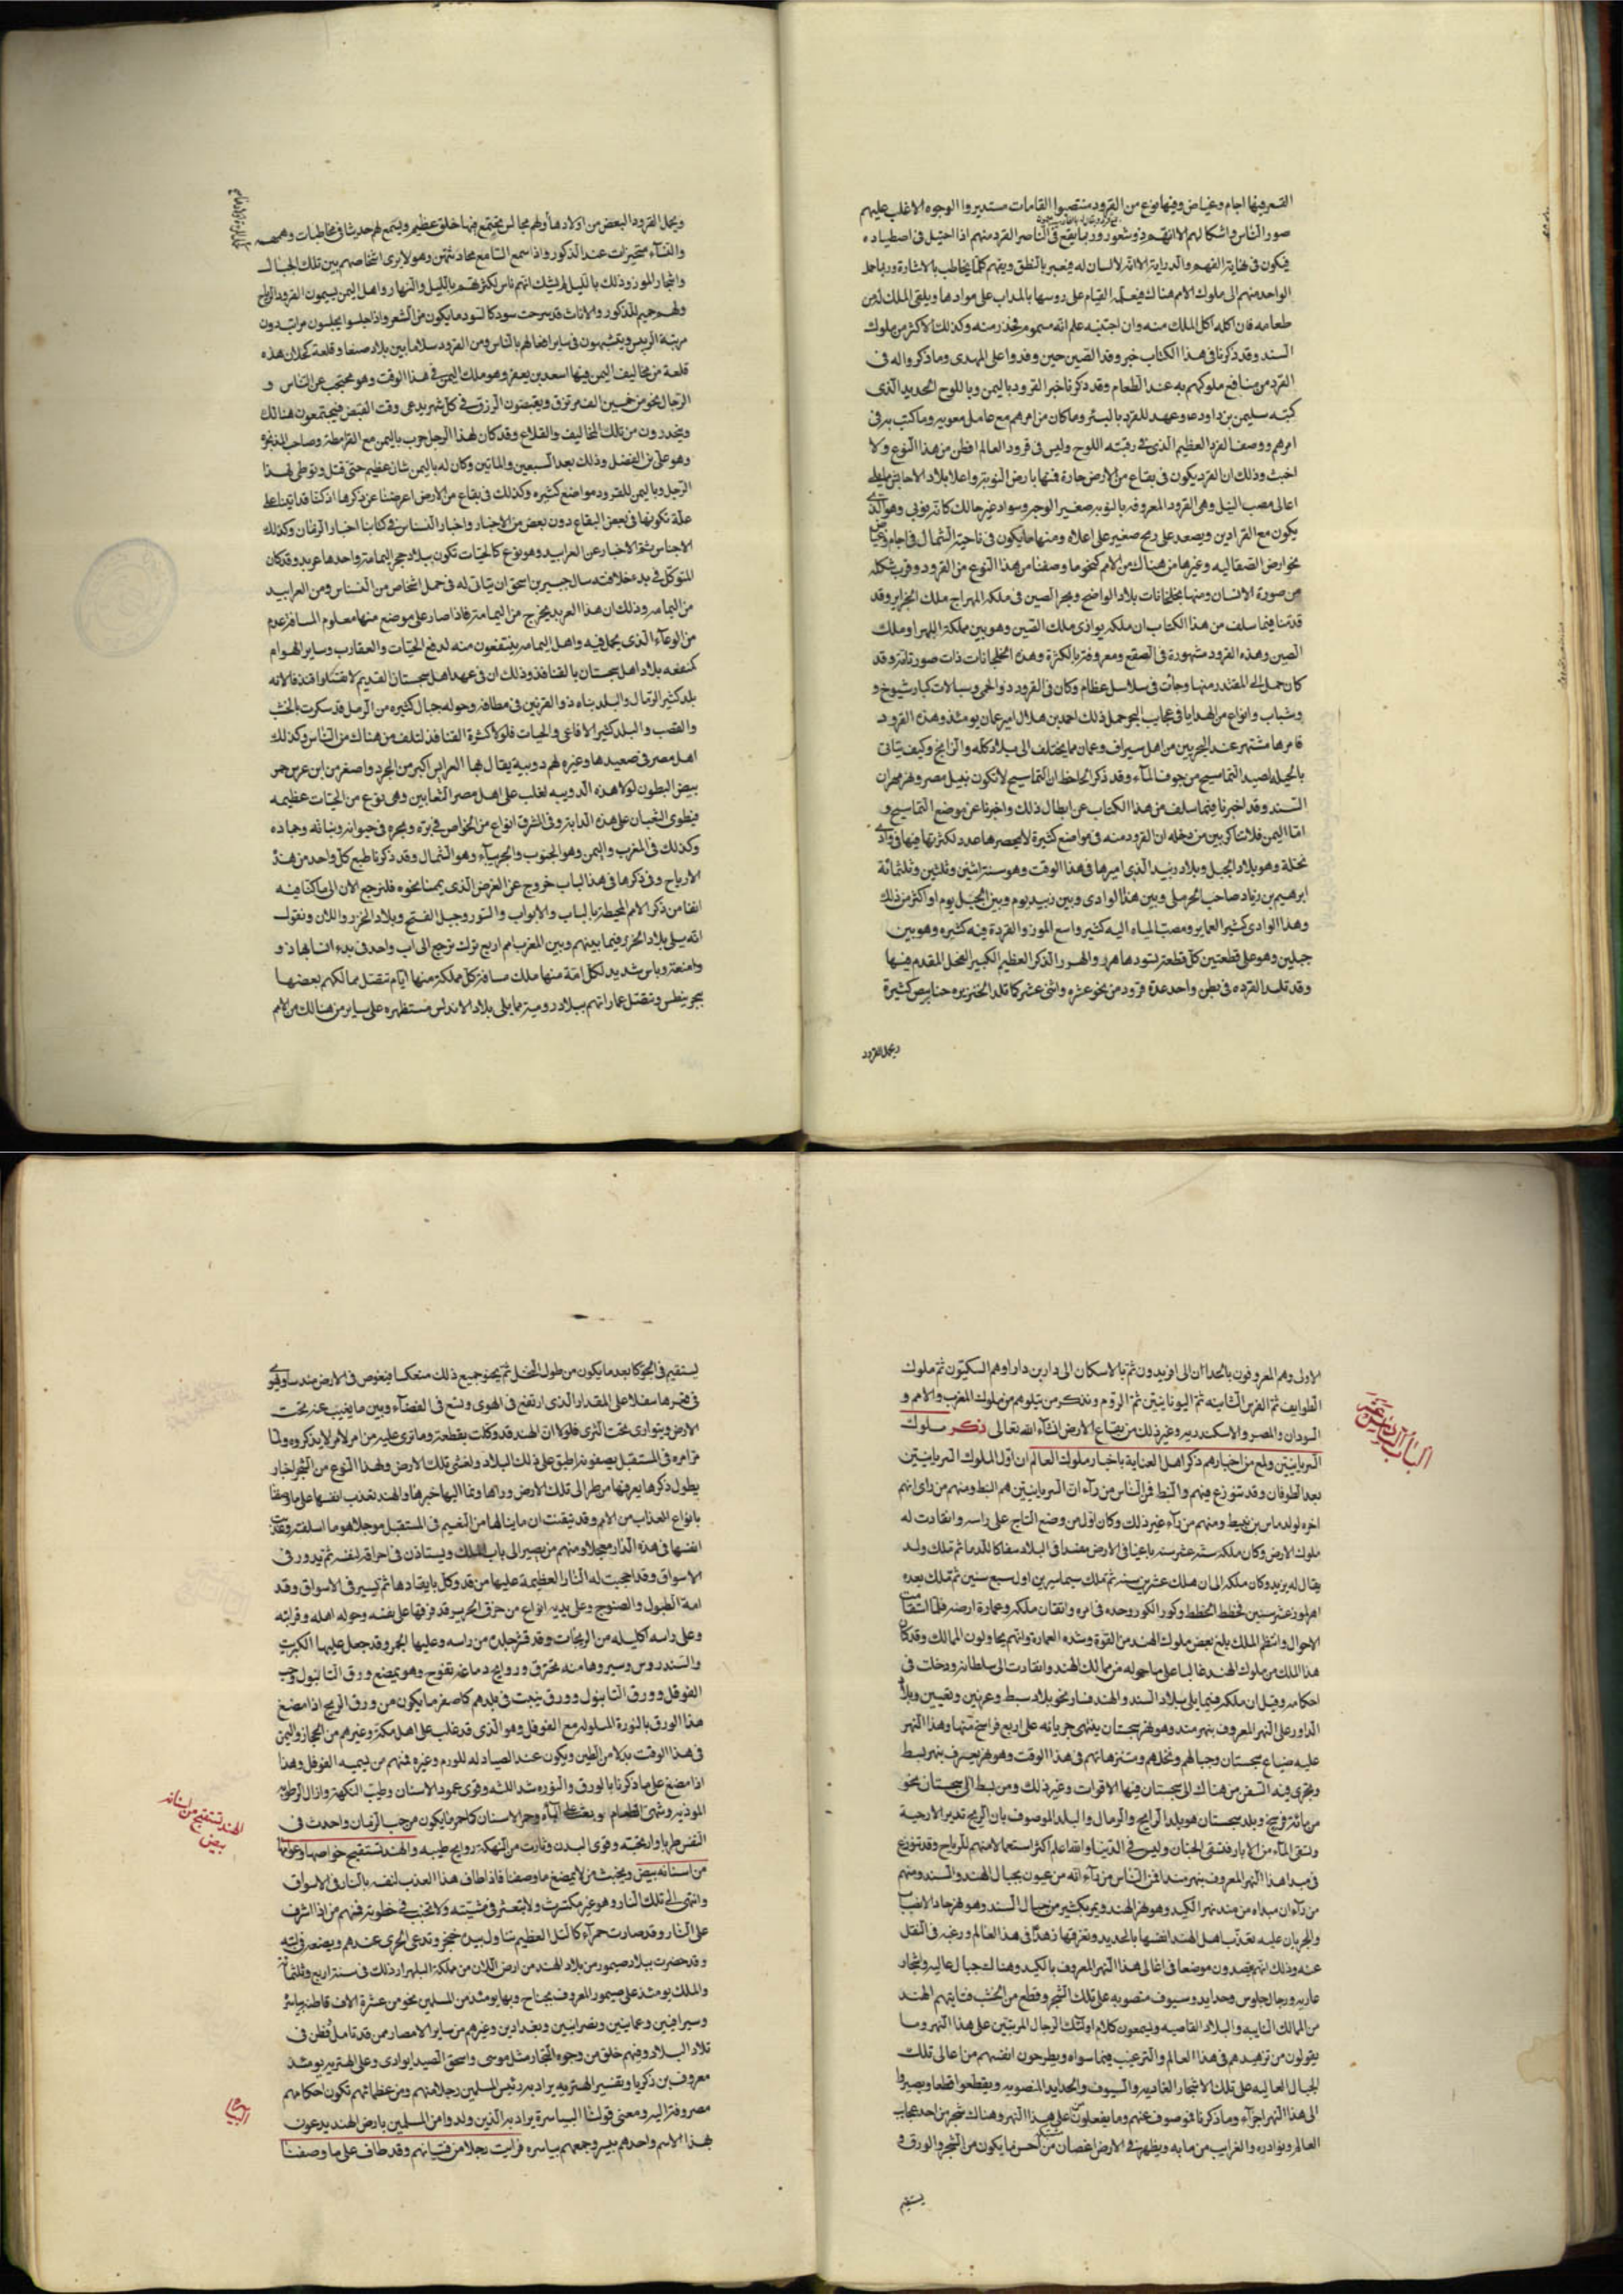 القعر فيها اجام وغياض وفيها نوع من القرود منتصبوا القامات مستديروا الوجوه الاغلب عليهم
صور الناس واشكالهم الا انهم ذو شعور وربما يقع في النادر القرد منهم اذا احتيل في اصطياده
فيكون في نهاية الفهم والدراية الا انه لا لسان له فيعبر بالنطق ويفهم كلما يخاطب بالاشارة وربما حمل
الواحد منهم الى ملوك الامم هناك فيعلم القيام على روسها بالمداب على موادها ويلقى الملك له من
طعامه فان اكله اكل الملك منه وان اجتنبه علم انه مسموم فحذر منه وكذلك الاكثر من ملوك
السند وقد ذكرنا في هذا الكتاب خبر وفد الصين حين وفدوا على المهدى وما ذكروا له فى
القرد من منافع ملوكهم به عند الطعام وقد ذكرنا خبر القرود باليمن وباللوح الحديد الذى
كتبه سليمن بن داود ع وعهد للقرد بالبئر وما كان من امرهم مع عامل معوية وما كتب به فى
امرهم ووصف القرد العظيم الذى في رقبته اللوح وليس فى قرود العالم افطن من هذا النوع ولا
اخبث وذلك ان القرد يكون فى بقاع من الارض حارة فمنها بارض النوبة واعلا بلاد الاحابش مما يلى
اعالى مصب النيل وهى القرود المعروفه بالنوبيه صغير الوجه وسواد غير حالك كانه نوبى وهو الذى
يكون مع القرادين ويصعد على رمح صغير على اعلاه ومنها ما يكون فى ناحية الشمال فى اجام وغياض
نحو ارض الصقاليه وغيرها من هناك من الامم كنحو ما وصفنا من هذا النوع من القرود وقرب شكله
من صورة الانسان ومنها بخلجانات بلاد الواضج وبحر الصين فى ملكه المهراج ملك الجزاير وقد
قدمنا فيما سلف من هذا الكتاب ان ملكه يوازى ملك الصين وهو بين مملكة اللهرا وملك
الصين وهذه القرود مشهورة فى الصقع ومعروفة بالكثرة وهذه الخلجانات ذات صور تامة وقد
كان حمل الى المقتدر منها وجات فى سلاسل عظام وكان فى القرود ذو الحى وسبالات كبار شيوخ و
وشباب وانواع من الهدايا فى عجايب البحر حمل ذلك احمد بن هلال امير عمان يومئذ وهذه القرود
فامرها مشتهر عند البحريين من اهل سيراف وعمان مما يختلف الى بلاد كله والزابج وكيف يتاتى
بالحيله لصيد التماسيح من جوف الماء وقد ذكر الجاحظ ان التماسيح لا تكون بنيل مصر ونهر مهران
السند وقد اخبرنا فيما سلف من هذا الكتاب عن ابطال ذلك واخبرنا عن موضع التماسيح و
اما اليمن فلا تناكر بين من دخله ان القرود منه فى مواضع كثيرة لا يحصرها عدد لكثرتها فمنها فى وادى
نخلة وهو بلاد الجبل وبلاد زبيد الذى اميرها فى هذا الوقت وهو سنة اثنتين وثلثين وثلثمائة
ابرهيم بن زياد صاحب الحرملى وبين هذا الوادى وبين زبيد يوم وبين الجبل يوم او اكثر من ذلك
وهذا الوادى كثير العمار ومصب المياه اليه كثير واسع الموز والقردة فيه كثيره وهو بين
جبلين وهو على قطعتين كل قطعة يسودها هزر والهزر الذكر العظيم الكبير الفحل المقدم فيها
وقد تلد القرده فى بطن واحد عدة قرود من نحو عشره واثنى عشر كما تلد الخنزيره خنانيص كثيرة
ويحمل القرود
ويحمل القرود البعض من اولادها ولهم مجالس يجتمع فيها خلق عظيم وليسمع لهم حديثا فى مخاطبات وهمهمه
والنساء متحيزات عند الذكور واذا سمع السامع محادثتهن وهو لا يرى اشخاصهم بين تلك الجبال
واشجار الموز وذلك بالليل لم يشك انهم ناس لكثرتهم بالليل والنهار واهل اليمن يسمون القرود الرباح
ولهم جميم للذكور والاناث قد سرحت سود كاسود ما يكون من الشعر واذا جلسوا يجلسون مراتب دون
مرتبة الرييس ويتشبهون فى ساير افعالهم بالناس ومن القرود سلاما بين بلاد صنعا وقلعة كحلان هذه
قلعة من مخاليف اليمن فيها اسعد بن يعفر وهو ملك اليمن في هذا الوقت وهو محتجب عن الناس و
الرجال نحو من خمسين الف مرتزق ويقبضون الرزق في كل شهر يدعى وقت القبض فيجتمعون هنالك
وينحدرون من تلك المخاليف والقلاع وقد كان لهذا الرجل حرب باليمن مع القرامطة وصاحب المذيخرة
وهو على بن الفضل وذلك بعد السبعين والماتين وكان له باليمن شان عظيم حتى قتل وتوطى لهذا
الرجل وباليمن للقرود مواضع كثيره وكذلك فى بقاع من الارض اعرضنا عن ذكرها اذ كنا قد اتينا على
علة تكونها فى بعض البقاع دون بعض من الاخبار واخبار النسناس فى كتابنا اخبار الزمان وكذلك
الاجناس ثم الاخبار عن العرابيد وهو نوع كالحيات تكون ببلاد حجر اليمامة واحدها عربد وقد كان
المتوكل في بدء خلافته سال جنين بن اسحق ان يتاتى له فى حمل اشخاص من النسناس ومن العرابيد
من اليمامه وذلك ان هذا العربد يخرج من اليمامة فاذا صار على موضع منها معلوم المسافة عدم
من الوعاء الذى يحمل فيه واهل اليمامه ينتفعون منه لدفع الحيات والعقارب وساير الهوام
كنفعه بلاد اهل سجستان بالقنافذ وذلك ان فى عهد اهل سجستان القديم لا تقتلوا قنفذا لانه
بلد كثير الرمال والبلد بناه ذو القرنين فى مطافه وحوله جبال كثيره من الرمل قد سكرت بالخشب
والقصب والبلد كثير الافاعى والحيات فلولا كثرة القنافذ لتلف من هناك من الناس وكذلك
اهل مصر فى صعيدها وغيره لهم دويبة يقال لها العرابس اكبر من الجرذ واصغر من ابن عرس حمر
بيض البطون لولا هذه الدويبه لغلب على اهل مصر الثعابين وهى نوع من الحيات عظيمه
فينطوى الثعبان على هذه الدابة وفى الشرق انواع من الخواص في بره وبحره فى حيوانه ونباته وجماده
وكذلك فى المغرب واليمن وهو الجنوب والجربياء وهو الشمال وقد ذكرنا طبع كل واحد من هذه
الارباح وفى ذكرها فى هذا الباب خروج عن الغرض الذى يممنا نحوه فلنرجع الان الى ما كنا فيه
انفا من ذكر الامم المحيطة بالباب والابواب والسور وجبل الفتح وبلاد الخزر واللان ونقول
انه يلى بلاد الخزر فيما بينهم وبين المغرب امم اربع ترك ترجع الى اب واحد فى بدء انسابها ذو
وامنعة وباس شديد لكل امة منها ملك مسافة كل مملكة منها ايام تتصل ممالكهم بعضها
ببحر نيطس وتتصل عماراتهم ببلاد رومية مما يلى بلاد الاندلس مستظهره على ساير من هنالك من الامم
الاولى وهم المعروفون بالحداان الى افريدون ثم بالاسكان الى دارا بن دارا وهم السكيون ثم ملوك
الطوايف ثم الفرس الثانيه ثم اليونانيين ثم الروم ونذكر من يتلوهم من ملوك المغرب والامم و
السودان والمصر والاسكندريه وغير ذلك من بقاع الارض ان شاء الله تعالى ذكر ملوك
السريانيين ولمع من اخبارهم ذكر اهل العناية باخبار ملوك العالم ان اول الملوك السريانيين
بعد الطوفان وقد تنوزع فيهم والنبط فمن الناس من راء ان السريانيين هم النبط ومنهم من راى انهم
اخوه لولد ماس بن نبيط ومنهم من راء غير ذلك وكان اول من وضع التاج على راسه وانقادت له
ملوك الارض وكان ملكه ستة عشر سنه باغيا فى الارض مفسدا فى البلاد سفاكا للدما ثم ملك ولد
يقال له بربد وكان ملكه الى ان هلك عشرين سنه ثم ملك سماسير بن اول سبع سنين ثم ملك بعده
اهرلمور عشر سنين فخطط الخطط وكور الكور وجد فى امره واتقان ملكه وعمارة ارضه فلما استقامت
الاحوال وانتظم الملك بلغ بعض ملوك الهند من القوة وشده العمارة وانهم يحاولون الممالك وقد كان
هذا الملك من ملوك الهند غالبا على ما حوله من ممالك الهند وانقادت الى سلطانه ودخلت فى
احكامه وقيل ان ملكه فيما يلى بلاد السند والهند فسار نحو بلاد بسط وعزنين ولعس وبلاد
الداور على النهر المعروف بنهر مند وهو نهر سجستان ينتهى جريانه على اربع فراسخ منها وهذا النهر
عليه ضياع سجستان وجبالهم ونخلهم ومتنزهاتهم فى هذا الوقت وهو نهر يعرف بنهر بسط
ويجرى فيه السفن من هناك الى سجستان فيها الاقوات وغير ذلك ومن بسط الى سجستان نحو
من مائة فرسخ وبلاد سجستان هو بلد الرايح والرمال والبلد الموصوف بان الريح تدير الارحية
وتسقى الماء من الابار فتسقى الجنان وليس في الدنيا والله اعلم اكثر استعمالا منهم للرياح وقد تنوزع
فى مبدا هذا النهر المعروف بنهر مند فمن الناس من راء انه من عيون بجبال الهند والسند ومنهم
من راء ان مبداه من مبدا نهر الكيد وهو نهر الهند ويمر بكثير من جبال السند وهو نهر حاد الانصباب
والجريان عليه يعذب اهل الهند انفسها بالحديد وتغرقها زهدا فى هذا العالم ورغبه فى النقل
عنه وذلك انهم يقصدون موضعا فى اعالى هذا النهر المعروف بالكيد وهناك جبال عاليه واشجار
عاريه ورجال جلوس وحدايد وسيوف منصوبه على تلك الشجر وقطع من الخشب فياتيهم الهند
من الممالك النايية والبلاد القاصيه وليسمعون كلام اولئك الرجال المرتبين على هذا النهر وما
يقولون من تزهيدهم فى هذا العالم والترغيب فيما سواه ويطرحون انفسهم من اعالى تلك
الجبال العاليه على تلك الاشجار العاديه والسيوف والحدايد المنصوبه ويقطعوا قطعا ويصيروا
الى هذا النهر اجزاء وما ذكرنا فموصوف عنهم وما يفعلون على هذا النهر وهناك شجر من احد عجايب
العالم ونوادره والغرايب من ما به ويظهر في الارض اغصان من احسن ما يكون من الشجر والورق و
يستقيم
ليستقيم فى الجو كابعد ما يكون من طول النخل ثم ينحو جميع ذلك منعكسا فيغوص فى الارض مندسا ويهوى
فى قعرها سفلا على المقدار الذى ارتفع فى الهوى وتبع فى الفضاء وبين ما يغيب عنه تحت
الارض ويتوارى تحت الثرى فلولا ان الهند قد وكلت بقطعه وما ترى عليه من امر لامر لا يذكروه ولما
من امره فى المستقبل يصفونه لطبق على ذلك البلاد ولغشى تلك الارض ولهذا النوع من الشجر اخبار
يطول ذكرها يعرفها من طرا الى تلك الارض وراها ونما اليها خبرها والهند تعذب انفسها على ما وصفنا
بانواع العذاب من الامم وقد تيقنت ان ما ينالها من النعيم فى المستقبل موجلا هو ما اسلفته وقدمت
انفسها فى هذه الدار معجلا ومنهم من يصير الى باب الملك ويستاذن فى احراقه لنفسه ثم يدور فى
الاسواق وقد اججت له النار العظيمة عليها من قد وكل بايقادها ثم يسير فى الاسواق وقد
امه الطبول والصنوج وعلى يديه انواع من خرق الحرير قد مزقها على نفسه وحوله اهله وقرابته
وعلى راسه اكليله من الريحان وقد قشر جلده من راسه وعليها الجمر وقد جعل عليها الكبريت
والسندروس وسير وهامته تحترق وروايح دماغه تفوح وهو يمضغ ورق التانبول وحب
الفوفل وورق التانبول وورق ينبت فى بلدهم كاصغر ما يكون من ورق الريح اذا مضغ
هذا الورق بالنورة المبلوله مع الفوفل وهو الذى قد غلب على اهل مكة وغيرهم من الحجاز واليمن
فى هذا الوقت بدلا من الطين ويكون عند الصيادله للورم وغيره فمنهم من يسميه الفوفل وهذا
اذا مضغ على ما ذكرنا بالورق والنوره شد اللثه وقوى عمود الاسنان وطيب النكهة وازال الرطوبه
الموذيه وشهى الطعام وبعث على الباه وحمر الاسنان كاحمر ما يكون من حب الرمان واحدث فى
النفس طربا واريحته وقوى البدن وثارت من النهكه روايح طيبه والهند تستقبح خواصها وعوامها
من اسنانه بيض ويتجنبث من لا يمضغ ما وصفنا فاذا طاف هذا المعذب لنفسه بالنار فى الاسواق
وانتهى الى تلك النار وهو غير مكترث ولا يتعثر فى مشيته ولا يتجنب في خطوته فمنهم من اذا اشرف
على النار وقد صارت جمراء كالتل العظيم تناول بيده خنجر ويدعى الحرى عندهم ويضعه فى لبته
وقد حضرت ببلاد صيمور من بلاد الهند من ارض اللان من مملكة البلهرا وذلك فى سنة اربع وثلثمائة
والملك يومئذ على صيمور المعروف بجناح وبها يومئذ من المسلمين نحو من عشرة الاف قاطنه بياسرة
وسيرافيين وعمانيين وبصرانيين وبغدادين وغيرهم من ساير الامصار ممن قد تاهل وقطن فى
تلاد البلاد وفيهم خلق من وجوه التجار مثل موسى واسحق الصيدابوارى وعلى الهزيه يومئذ
معروف بن زكريا وتفسير الهنرمه يراد به رئيس المسلمين رجلا منهم ومن عظمائهم تكون احكامهم
مصروفة اليه ومعنى قولنا البياسرة يراد به الذين ولدوا من المسلمين بارض الهند يدعون
بهذا الاسم واحدهم بيسر وجمعهم بياسره فرايت رجلا من فتيانهم وقد طاف على ما وصفنا
الهند تستقبح من اسنانه
بيض